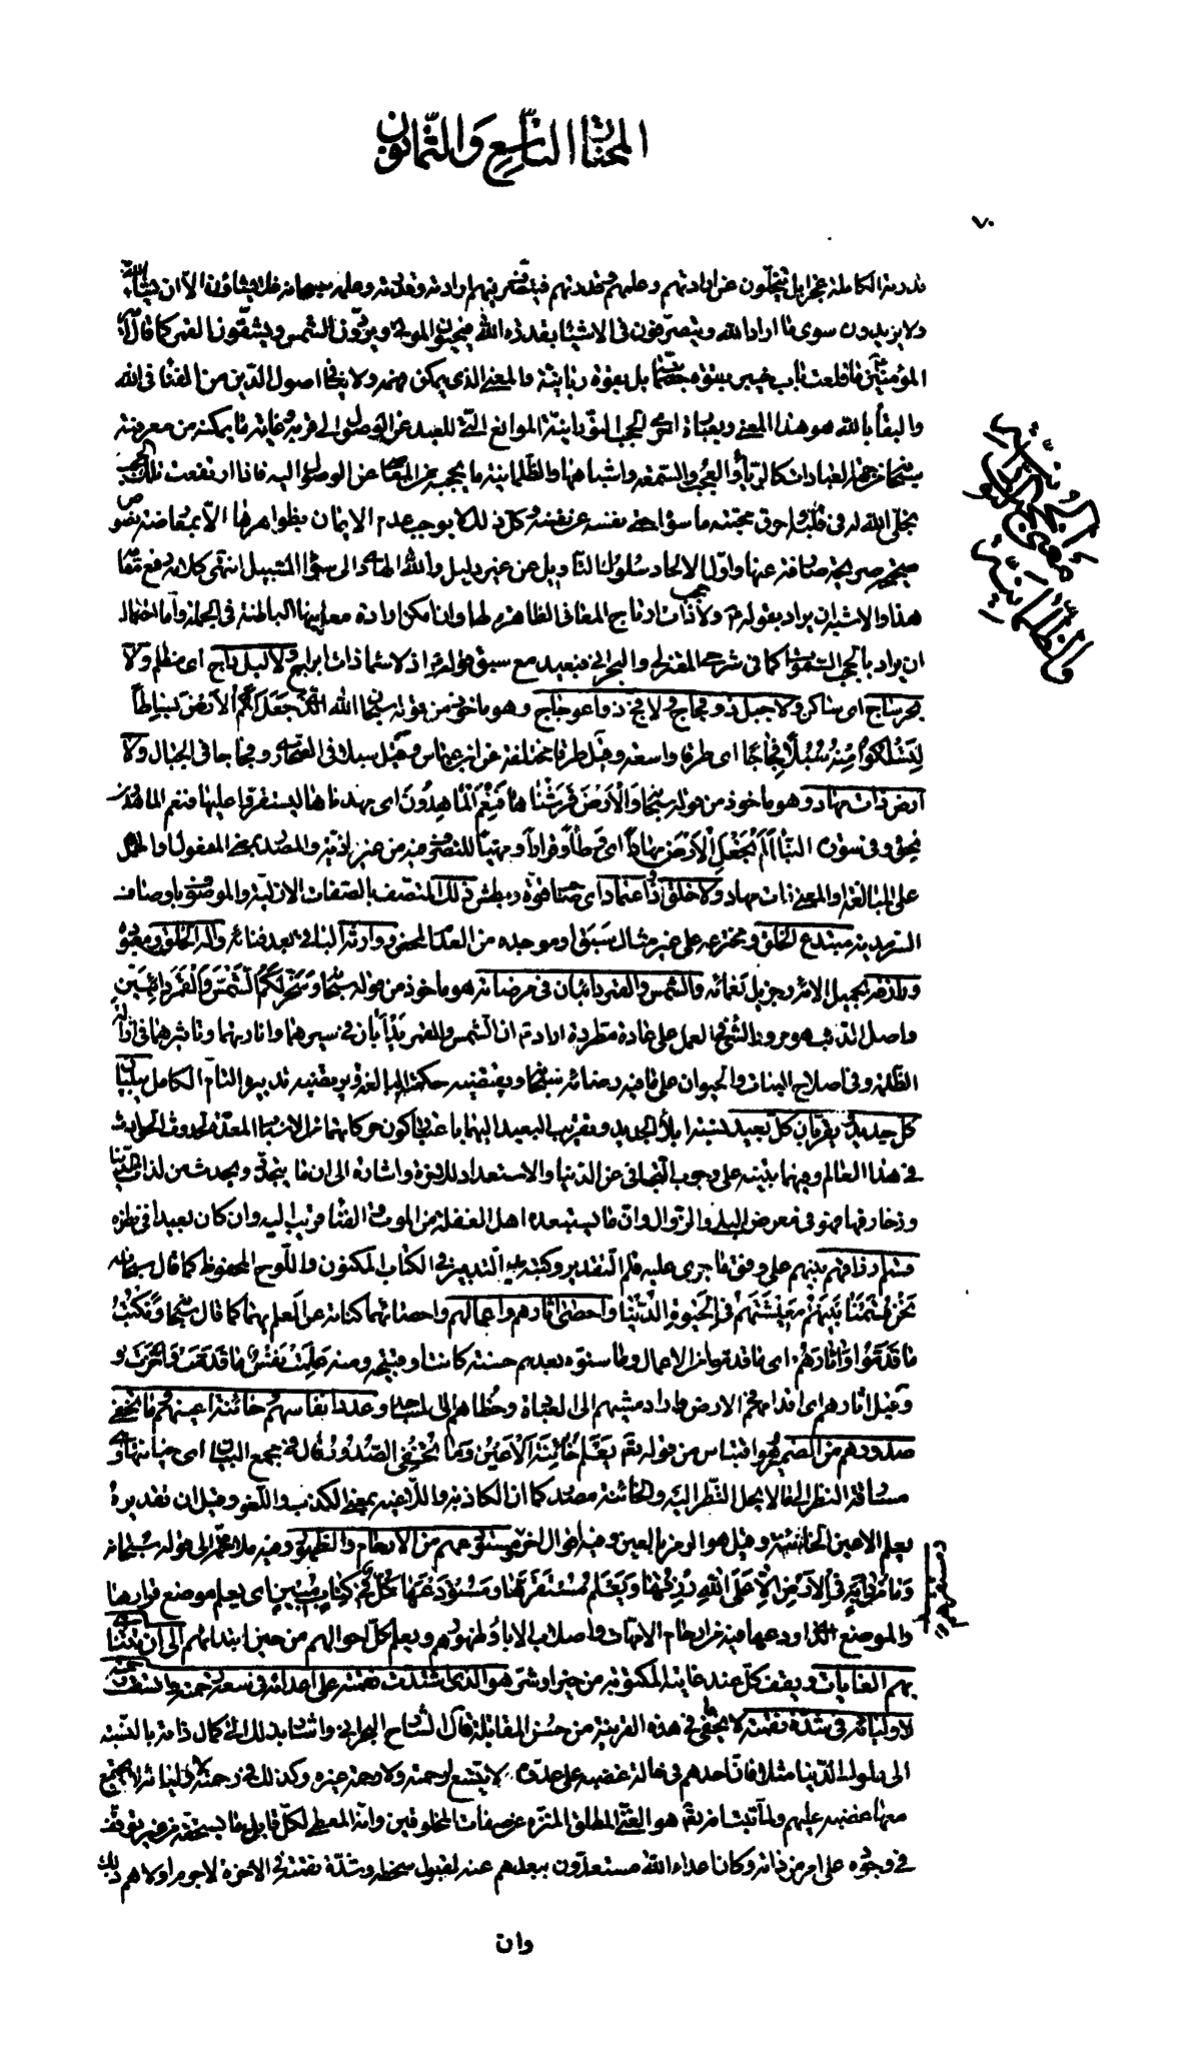 المختار التاسع والثمانون
٧٠
قدرته الكاملة عجزا بل يتخلّون عن ارادتهم وعلمهم وقدرتهم فيتصرّف فيهم ارادته وقدرته وعلمه سبحانه فلا يشاؤن الّا ان يشاء الله
ولا يريدون سوى ما اراد الله ويتصرّفون في الاشياء بقدرة الله فيحيون الموتى ويردّون الشمس ويشقّون القمر كما قال امير
المؤمنين ما قلعت باب خيبر بقوّة جسمانيّة بل بقوّة ربانيّة والمعنى الذي يمكن فهمه ولا ينافي اصول الدّين من الفناء في الله
والبقاء بالله هو هذا المعنى وبعبارة اخرى الحجب النّورانيّة الموانع الّتي للعبد عن الوصول الى قربه وغاية ما يمكنه من معرفته
سبحانه من جهة العبادات كالرّياء والعجب والسّمعة واشباهها والظّلمانيّة ما يحجبه من المعاصي عن الوصول اليه فاذا ارتفعت تلك الحجب
تجلّى الله له في قلبه واحرق محبّته ما سواه حتّى نفسه عن نفسه وكلّ ذلك لا يوجب عدم الايمان بظواهرها الّا بمعارضة نصوص
صحيحة صريحة صارفة عنها واوّل الالحاد سلوك التّأويل من غير دليل والله الهادي الى سواء السّبيل انتهى كلامه رفع مقامه
هذا والاشبه ان يراد بقوله ولا حجب ذات ارتاج المعاني الظاهرة لها وان امكن ارادة معانيها الباطنة في الجملة وامّا احتمال
ان يراد بالحجب السّموات كما في شرحي المعتزلي والبحراني فبعيد مع سبق قوله اذ لا سماء ذات ابراج ولا ليل داج اي مظلم ولا
بحر ساج اي ساكن ولا جبل ذو فجاج ولا فجّ ذو اعوجاج وهو مأخوذ من قوله سبحانه الله الّذي جعل لكم الارض بساطا
لتسلكوا منها سبلا فجاجا اي طرقا واسعة وقيل طرقا مختلفة عن ابن عبّاس وقيل سبلا في الصحاري وفجاجا في الجبال ولا
ارض ذات مهاد وهو مأخوذ من قوله سبحانه والارض فرشناها فنعم الماهدون اي مهدناها ليستقرّوا عليها فنعم الماهدون
نحن وفي سورة النبأ الم نجعل الارض مهادا اي وطاء وقرارا ومهيّئا للتصرّف فيه من غير اذيّة والمصدر بمعنى المفعول او الحمل
على المبالغة او المعنى ذات مهاد ولا خلق ذو اعتماد اي صاحب قوّة وبطش ذلك المتّصف بالصّفات الازليّة والموصوف باوصاف
السّرمديّة مبتدع الخلق ومخترعه على غير مثال سبق او موجده من العدم المحض ووارثه الباقي بعد فنائه واله الخلق ومعبوده
ورازقه بجميل الائه وجزيل نعمائه والشّمس والقمر دائبان في مرضاته هو مأخوذ من قوله سبحانه وسخّر لكم الشّمس والقمر دائبين
واصل الدّئب هو مرور الشّيء في العمل على عادة مطّردة اراد به انّ الشّمس والقمر يدأبان في سيرهما وانارتهما وتأثيرهما في ازالة
الظّلمة وفي اصلاح النبات والحيوان على ما فيه رضائه سبحانه ويقتضيه حكمته البالغة ويرتضيه تدبيره التامّ الكامل يبليان
كلّ جديد ويقرّبان كلّ بعيد نسبة ابلاء الجديد وتقريب البعيد اليهما باعتبار كون حركاتهما من الاسباب المعدّة لحدوث الحوادث
في هذا العالم وفيهما تنبيه على وجوب التّجافي عن الدّنيا والاستعداد للاخرة واشارة الى ان ما يتجدّد ويحدث من لذّات الدّنيا
وزخارفها فهو في معرض البلى والزّوال وانّ ما يستبعده اهل الغفلة من الموت والفناء قريب اليه وان كان بعيدا في نظره
قسّم ارزاقهم بينهم على وفق ما جرى عليه قلم التّقدير وكتبه يد التّدبير في الكتاب المكنون واللّوح المحفوظ كما قال سبحانه
نحن قسمنا بينهم معيشتهم في الحيوة الدّنيا واحصى اثارهم واعمالهم واحصائهما كناية عن العلم بهما كما قال سبحانه ونكتب
ما قدّموا واثارهم اي ما قدّموا من الاعمال وما سنّوه بعدهم حسنة كانت او قبيحة ومنه علمت نفس ما قدّمت واخّرت و
وقيل اثارهم اي اقدامهم في الارض واراد مشيهم الى العبادة وخطاهم الى المساجد وعدد انفاسهم وخائنة اعينهم وما تخفي
صدورهم من الضمير هو اقتباس من قوله تعالى يعلم خائنة الاعين وما تخفي الصّدور قال في مجمع البيان اي خيانتها وهي
مسارقة النظر الى ما لا يحلّ النّظر اليه والخائنة مصدر كما انّ الكاذبة واللّاغية بمعنى الكذب واللّغو وقيل ان تقديره
يعلم الاعين الخائنة وقيل هو الرّمز بالعين وفيه اقوال اخر ومستقرّهم ومستودعهم من الارحام والظّهور وفيه ملامحة الى قوله سبحانه
وما من دابّة في الارض الّا على الله رزقها ويعلم مستقرّها ومستودعها كلّ في كتاب مبين اي يعلم موضع قرارها
والموضع الّذي اودعها فيه من ارحام الامّهات واصلاب الاباء ويعلم كلّ احوالهم من حين ابتدائهم الى ان تتناهى
بهم الغايات ويقف كلّ عند غايته المكتوبة من خير او شرّ هو الّذي اشتدّت نقمته على اعدائه في سعة رحمته واتّسعت رحمته
لاوليائه في شدّة نقمته لا يخفى ما في هذه القرينة من حسن المقابلة قال الشّارح البحراني واشار بذلك الى كمال ذاته بالنّسبة
الى ملوك الدّنيا مثلا فانّ احدهم في حالة غضبه على عدوّه لا يتّسع لرحمته ولا رحمة غيره وكذلك في رحمته لاوليائه لا يجتمع
معها غضبه عليهم ولمّا ثبت انّه تعالى هو الغنيّ المطلق المنزّه عن صفات المخلوقين وانّه المعطي لكلّ قابل ما يستحقّه من غير توقّف
في وجوده على امر من ذاته وكان اعداء الله مستعدّون ببعدهم عنه لقبول سخطه وشدّة نقمته في الاخرة لا جرم اولاهم ذلك
وان